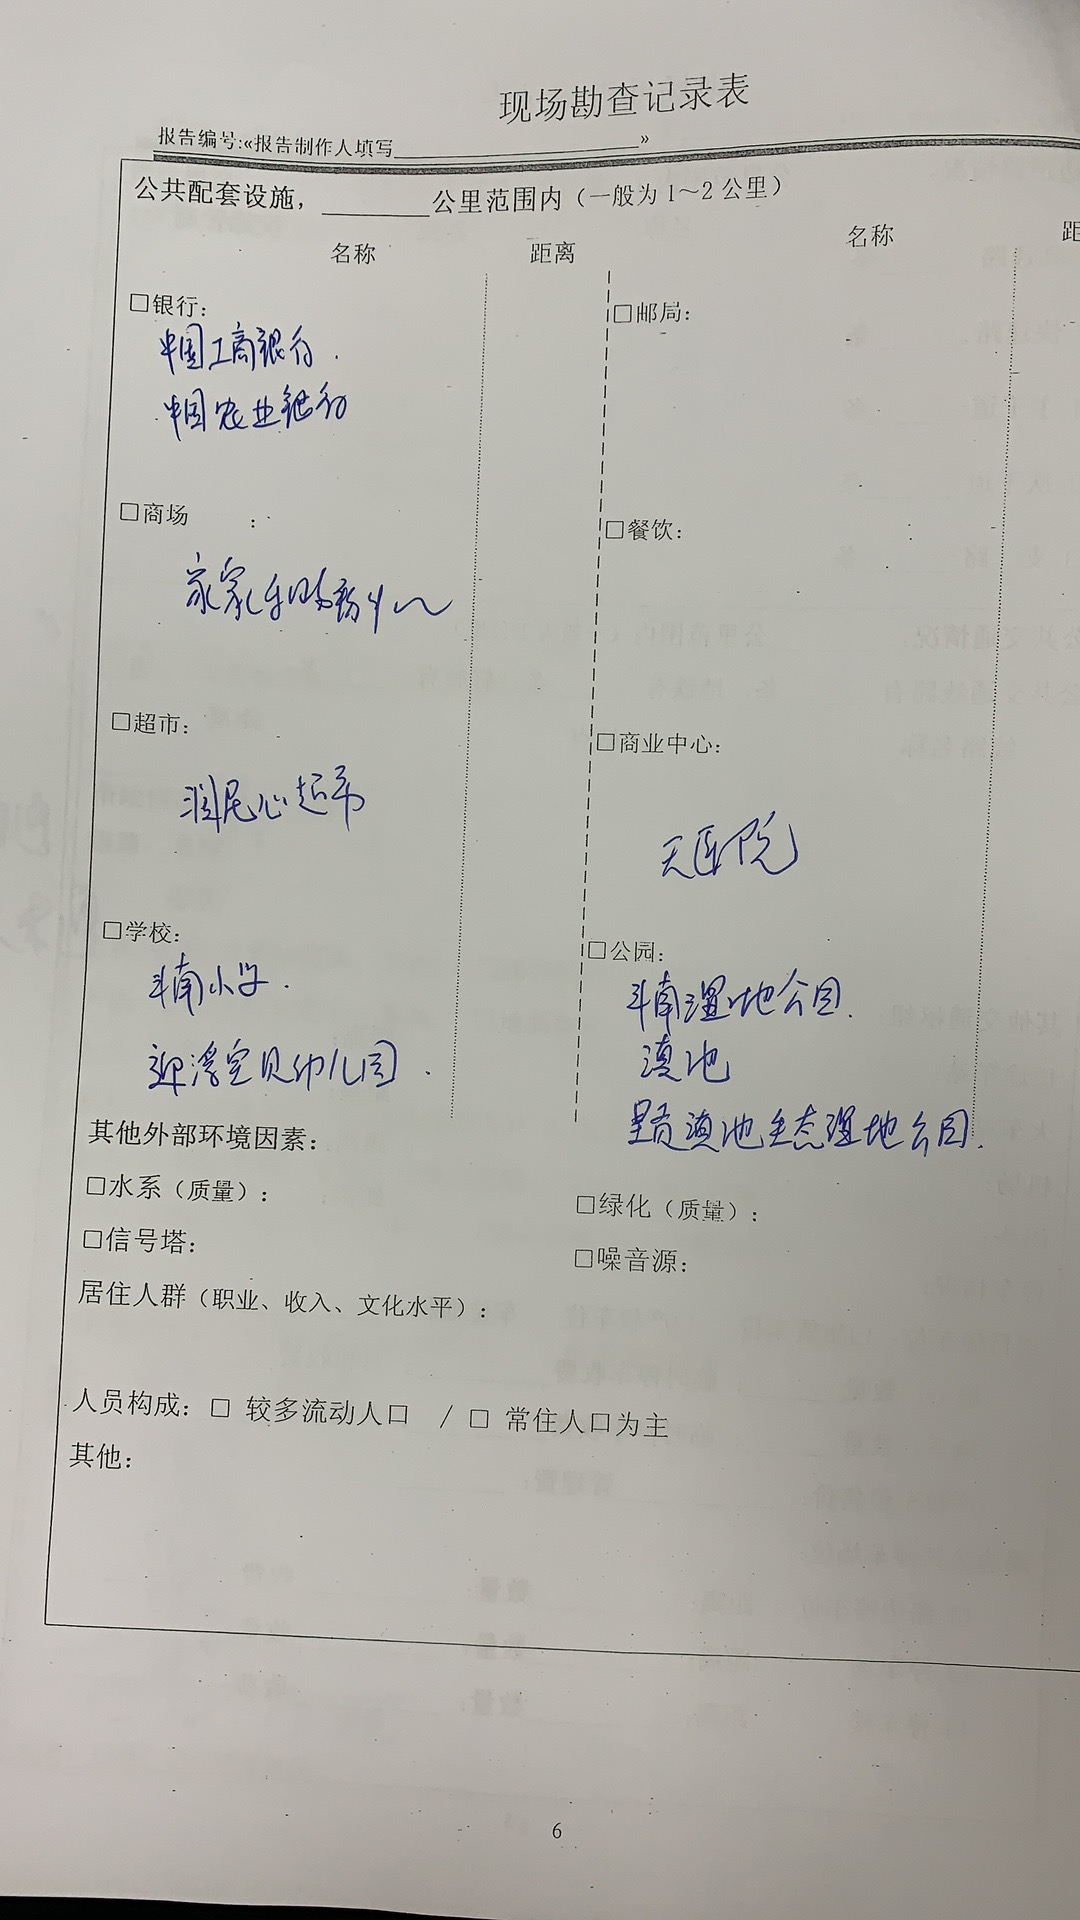 现场勘查记录表
报告编号:«报告制作人填写____________________»
公共配套设施，________公里范围内（一般为 1～2 公里）
名称 距离 名称 距
□银行：
中国工商银行.
中国农业银行
□邮局：
□商场 ：
家家乐购物中心
□餐饮：
□超市：
润民心超市
□商业中心：
天医院
□学校：
斗南小学.
迎 宝贝幼儿园.
□公园：
斗南湿地公园.
滇池
滇池生态湿地公园.
其他外部环境因素：
□水系（质量）： □绿化（质量）：
□信号塔： □噪音源：
居住人群（职业、收入、文化水平）：
人员构成：□ 较多流动人口 / □ 常住人口为主
其他：
6